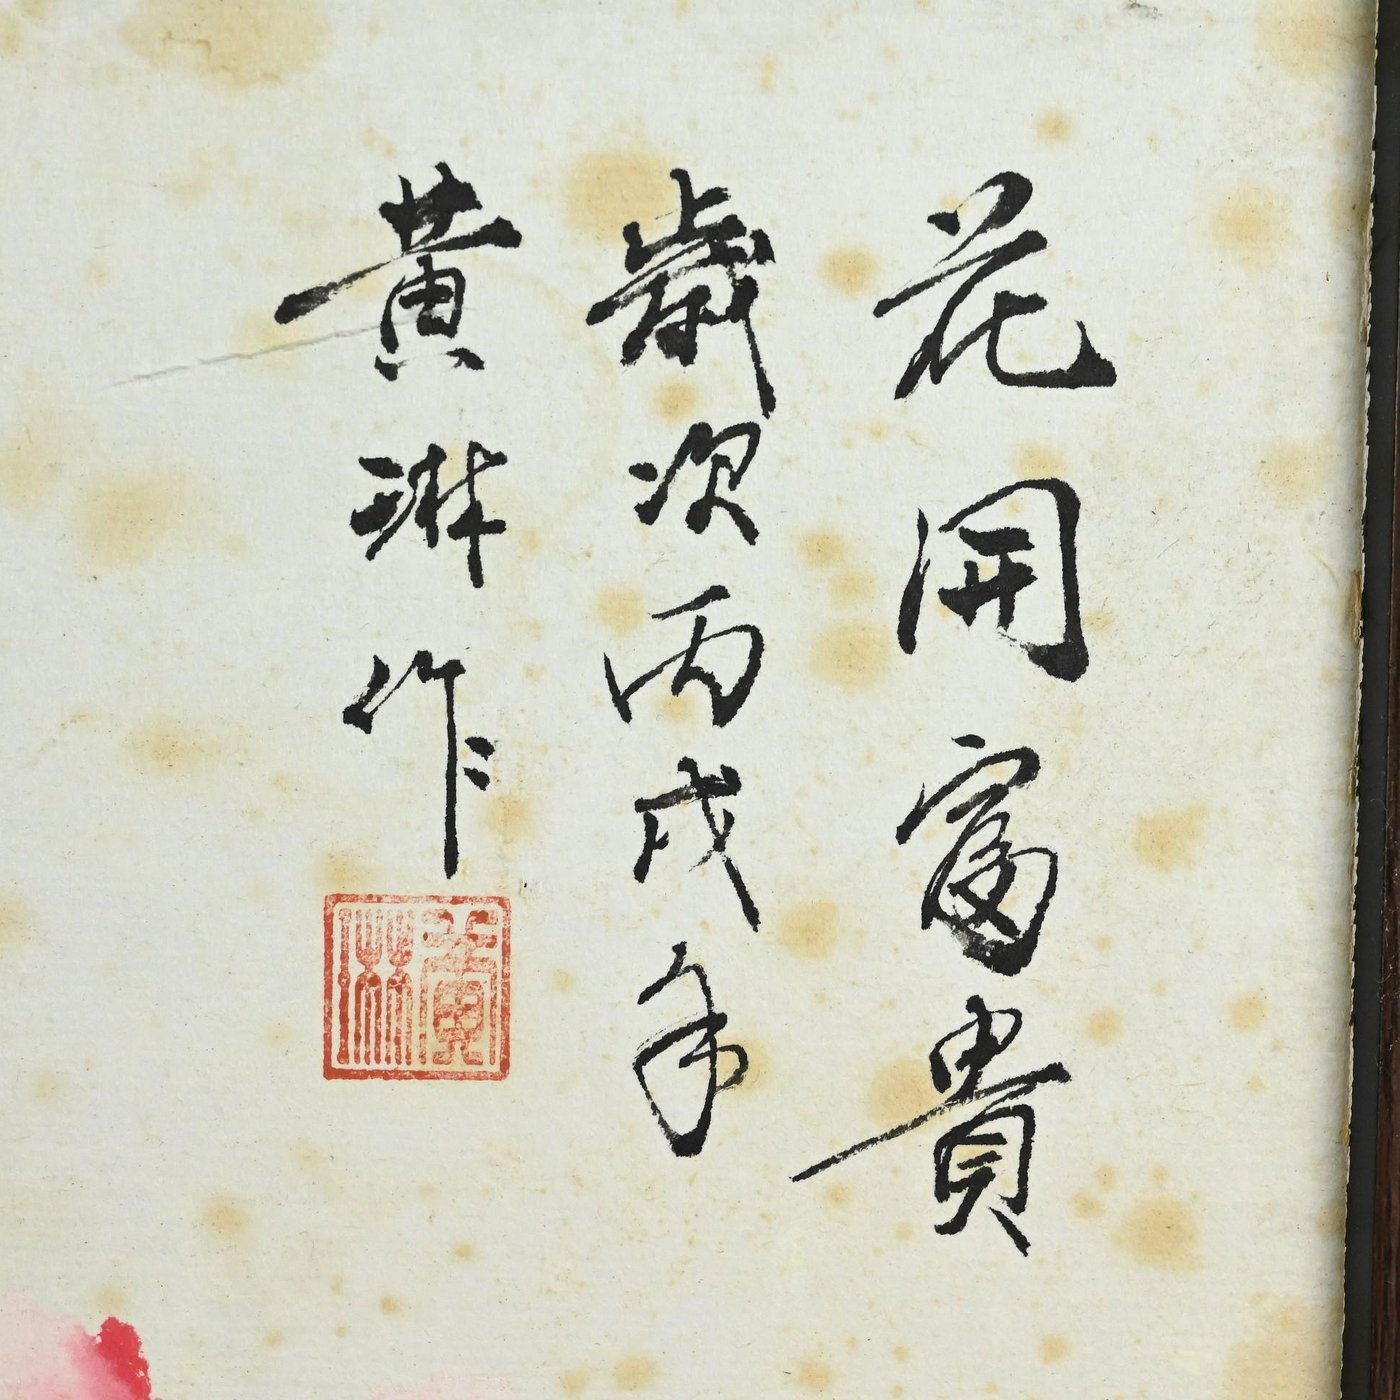 花開富貴
歲次丙戌年
黃琳作
黃琳